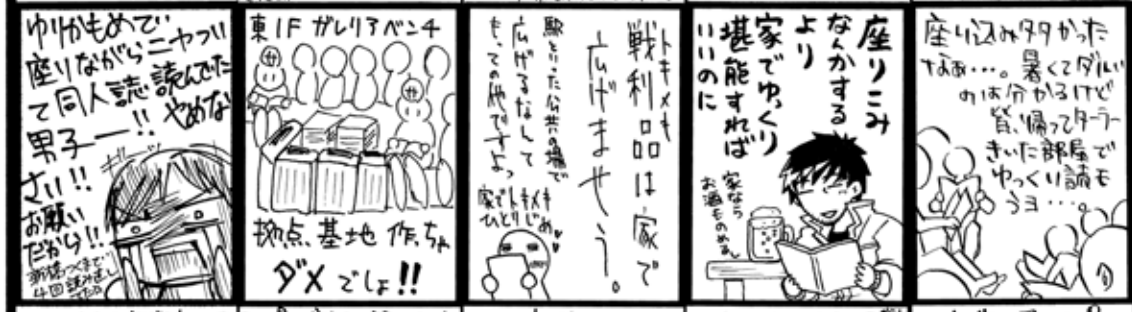 ゆりかもめで
座りながらニヤつい
て同人誌読んでた
男子ー!! やめな
さい!!
お願い
だから!!
新橋つくまで
4回読みまし
東1F ガレリアベンチ
拠点、基地 作っちゃ
ダメでしょ!!
トキメキ
戦利品は家で
広げませう。
駅といった公共の場で
広げるなんて
もっての他ですよっ
家でトキメキ
ひとりじめ♥
座りこみ
なんかする
より
家でゆっくり
堪能すれば
いいのに
家なら
お酒ものめるし
座り込み多かった
なあ…。暑くてダルい
のは分かるけど
皆、帰ってクーラー
きいた部屋で
ゆっくり読も
うヨ…。